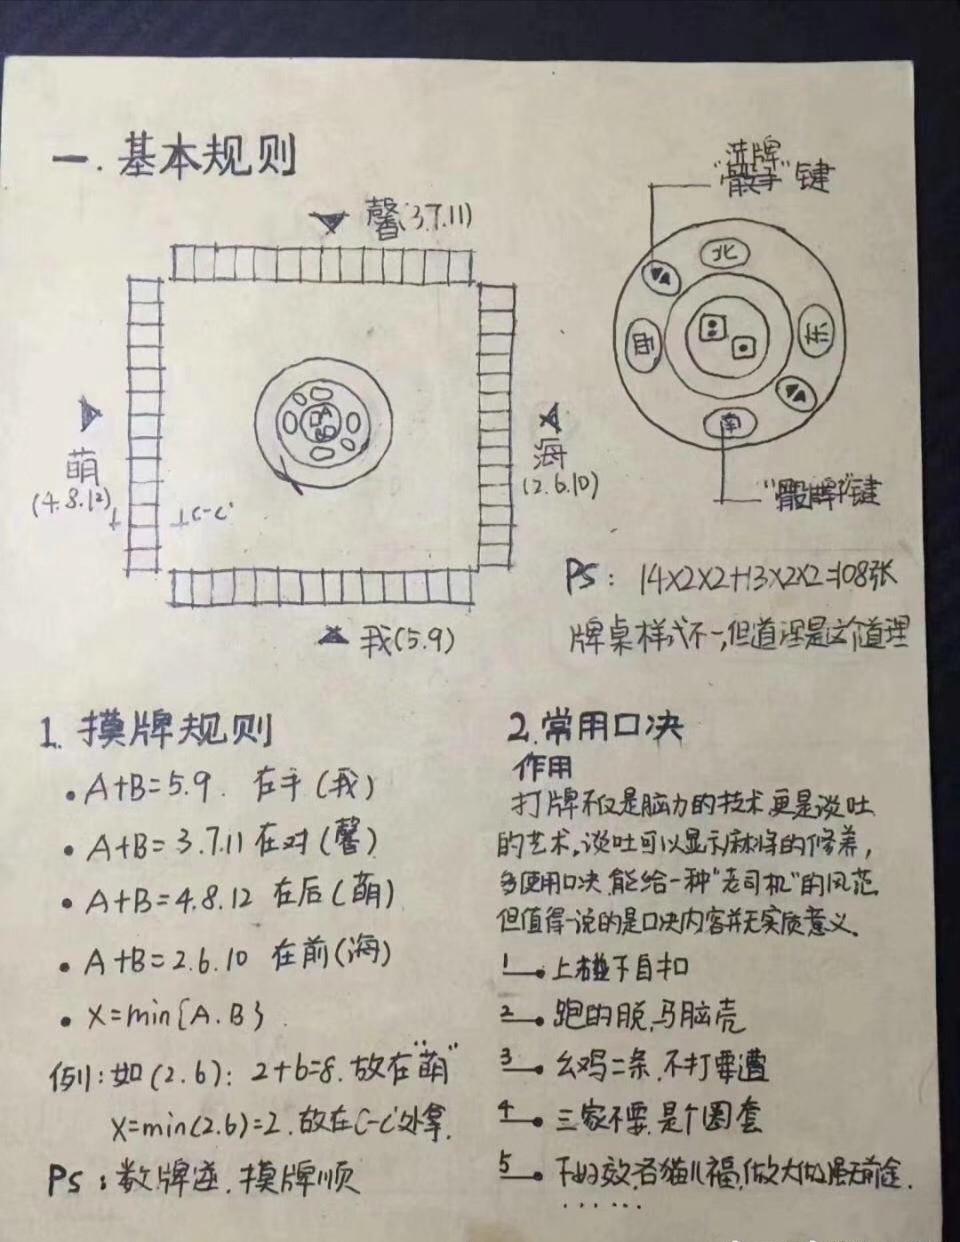 一.基本规则
馨(3.7.11)
萌
(4.8.12)
C-C'
海
(2.6.10)
我(5.9)
洗牌
"骰子"键
北
西
东
南
键
PS: 14X2X2+13X2X2=108张
牌桌样式不一,但道理是这个道理
1.摸牌规则
·A+B=5.9. 在手(我)
·A+B=3.7.11 在对(馨)
·A+B=4.8.12 在后(萌)
·A+B=2.6.10 在前(海)
·X=min{A.B}
例:如(2.6): 2+6=8.放在"萌"
X=min(2.6)=2.放在C-C'处拿.
PS:数牌逆.摸牌顺
2.常用口决
作用
打牌不仅是脑力的技术,更是谈吐
的艺术,谈吐可以显示麻将的修养,
多使用口决,能给一种"老司机"的风范.
但值得一说的是口决内容并无实质意义.
1 上碰下自扣
2 跑的脱,马脑壳
3 幺鸡二条.不打要遭
4 三家不要.是个圈套
5 猫儿福,做大做强无前途.
......